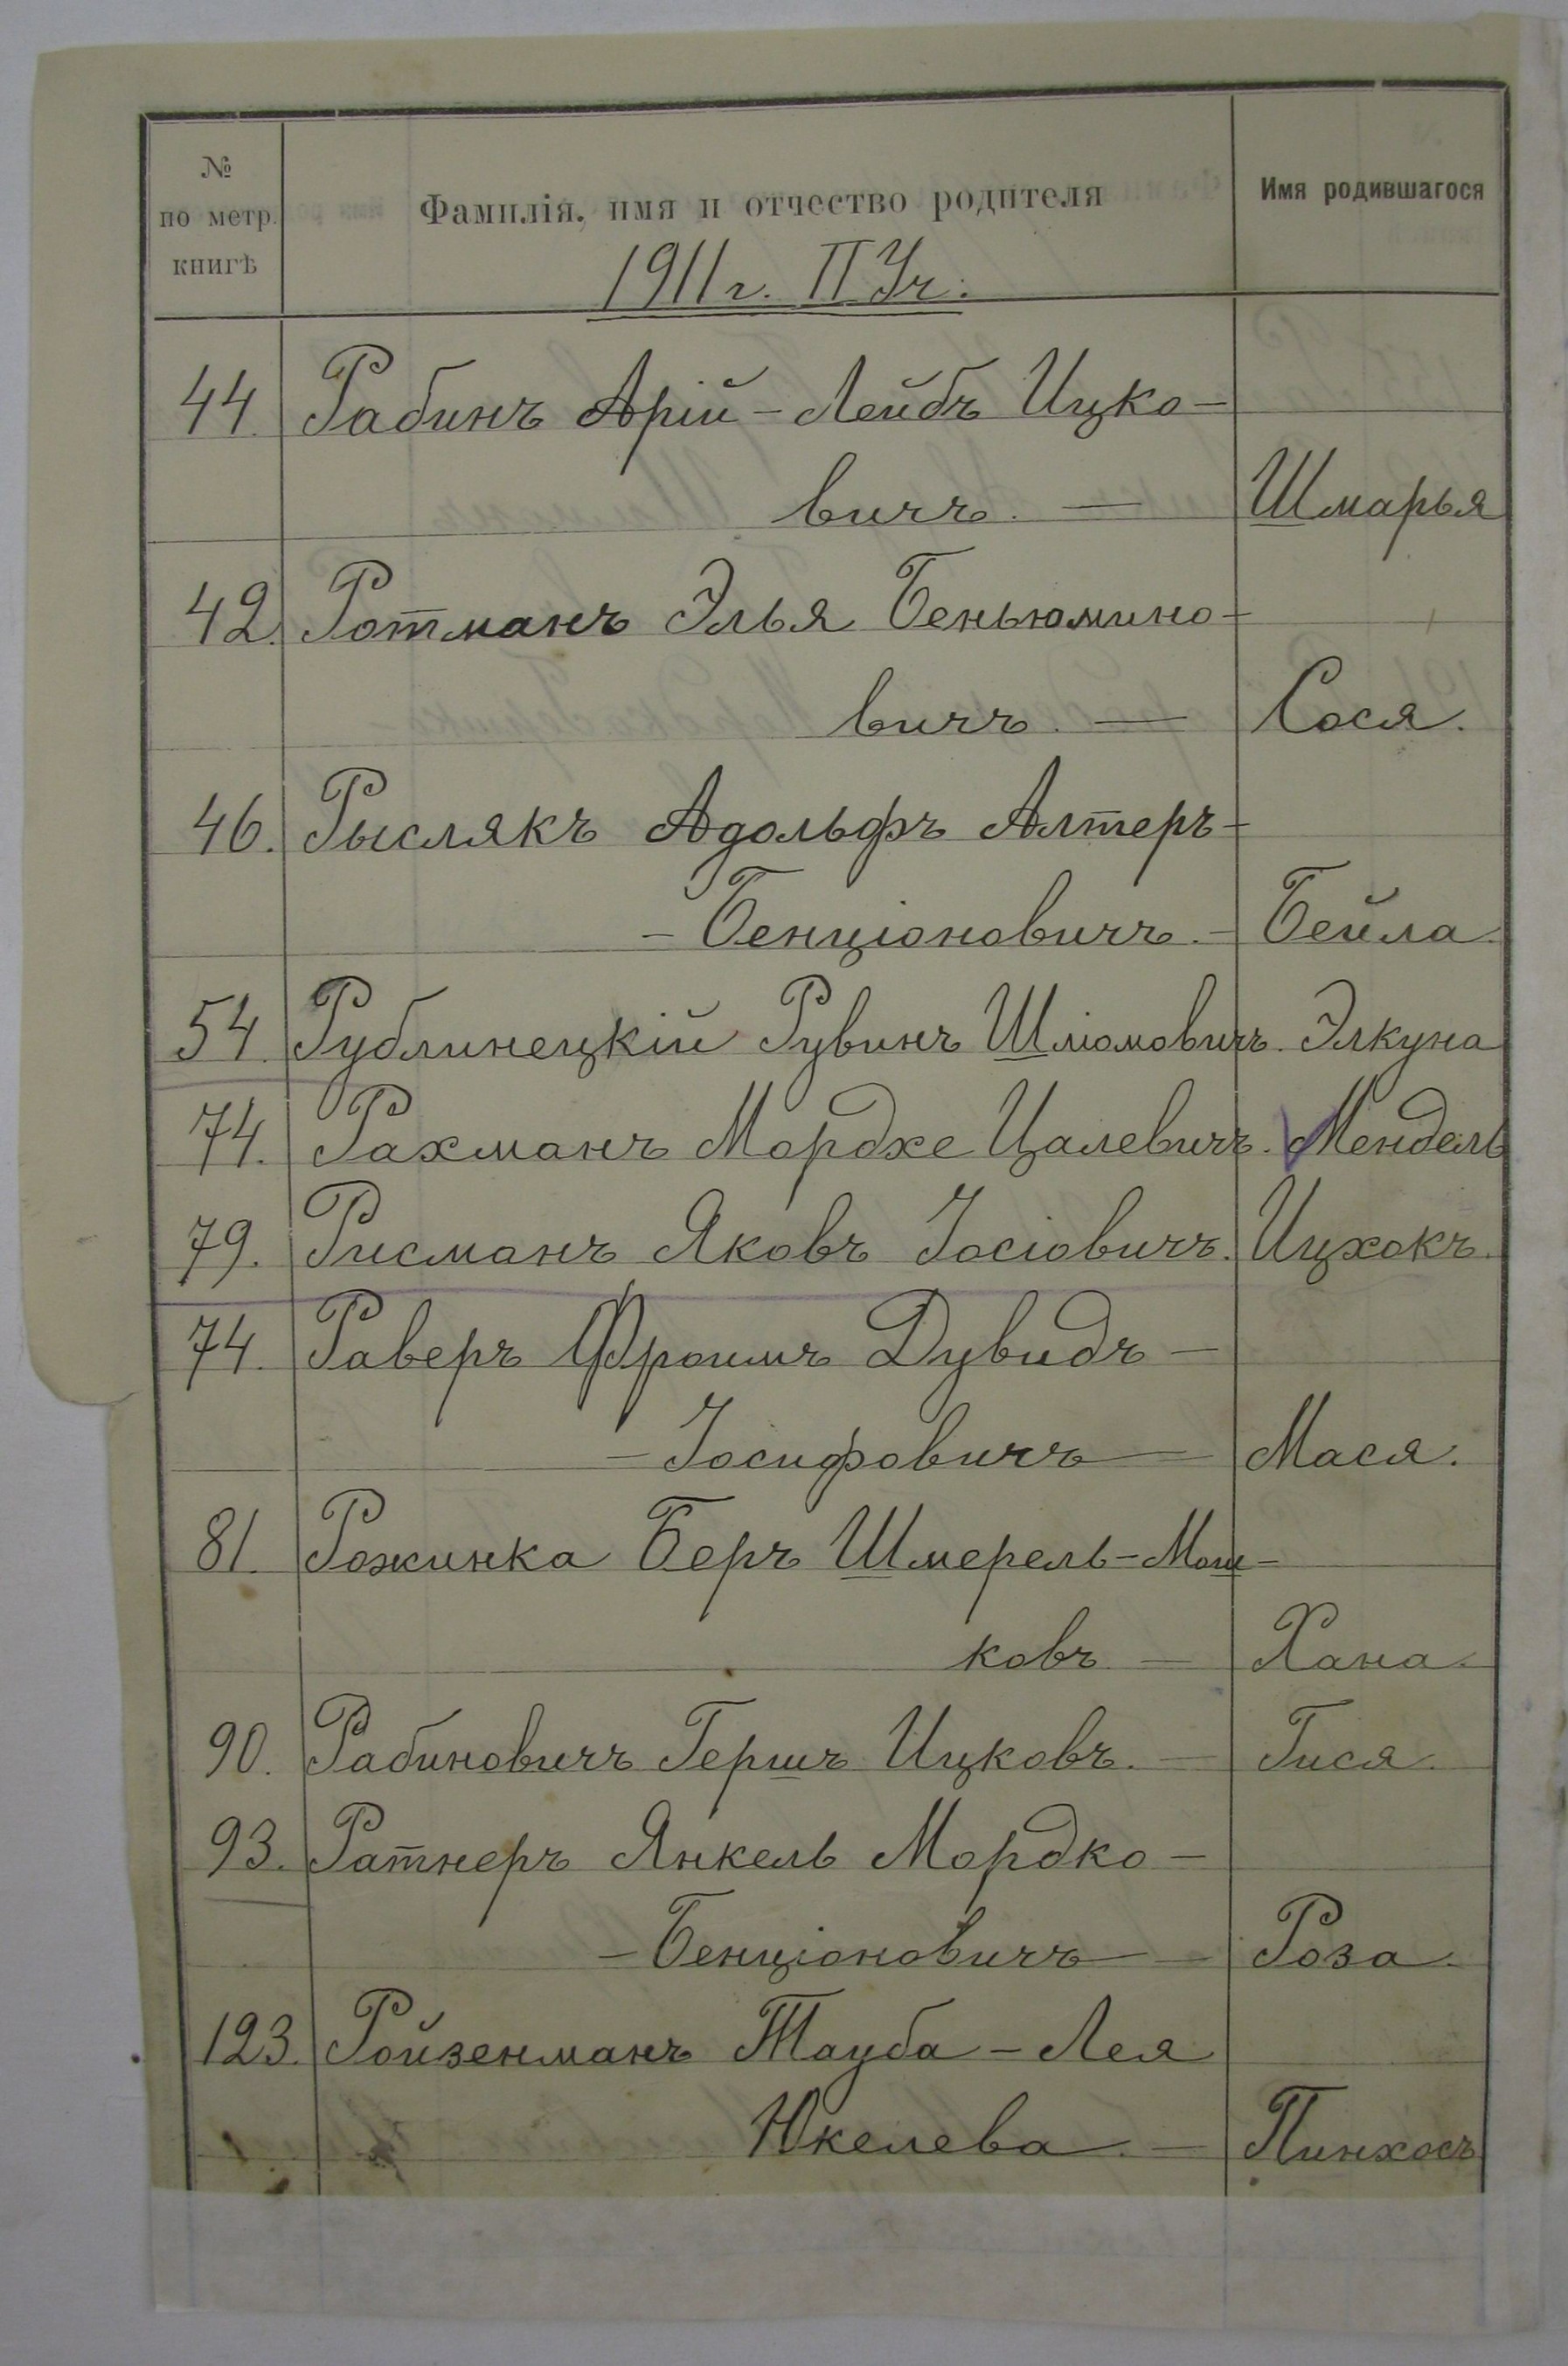 № по метр. книгѣ Фамилія, имя и отчество родителя Имя родившагося
1911 г. II Уч.
44. Рабинъ Арій-Лейбъ Ицко-
вичъ. — Шмарья
42. Ротманъ Элья Беньюмино-
вичъ. — Сося.
46. Рыслякъ Адольфъ Алтеръ-
-Бенціоновичъ. - Бейла.
54. Рублинецкій Рувинъ Шліомовичъ. Элкуна
74. Рахманъ Мордхе Цалевичъ. Мендель
79. Рисманъ Яковъ Іосіовичъ. Ицхокъ.
74. Раверъ Фроимъ Дувидъ-
-Іосифовичъ — Мася.
81. Рожинка Беръ Шмерель-Мош-
ковъ. — Хана.
90. Рабиновичъ Гершъ Ицковъ. — Гися.
93. Ратнеръ Янкель Мордко-
-Бенціоновичъ — Роза.
123. Ройзенманъ Тауба-Лея
Юкелева. — Пинхосъ